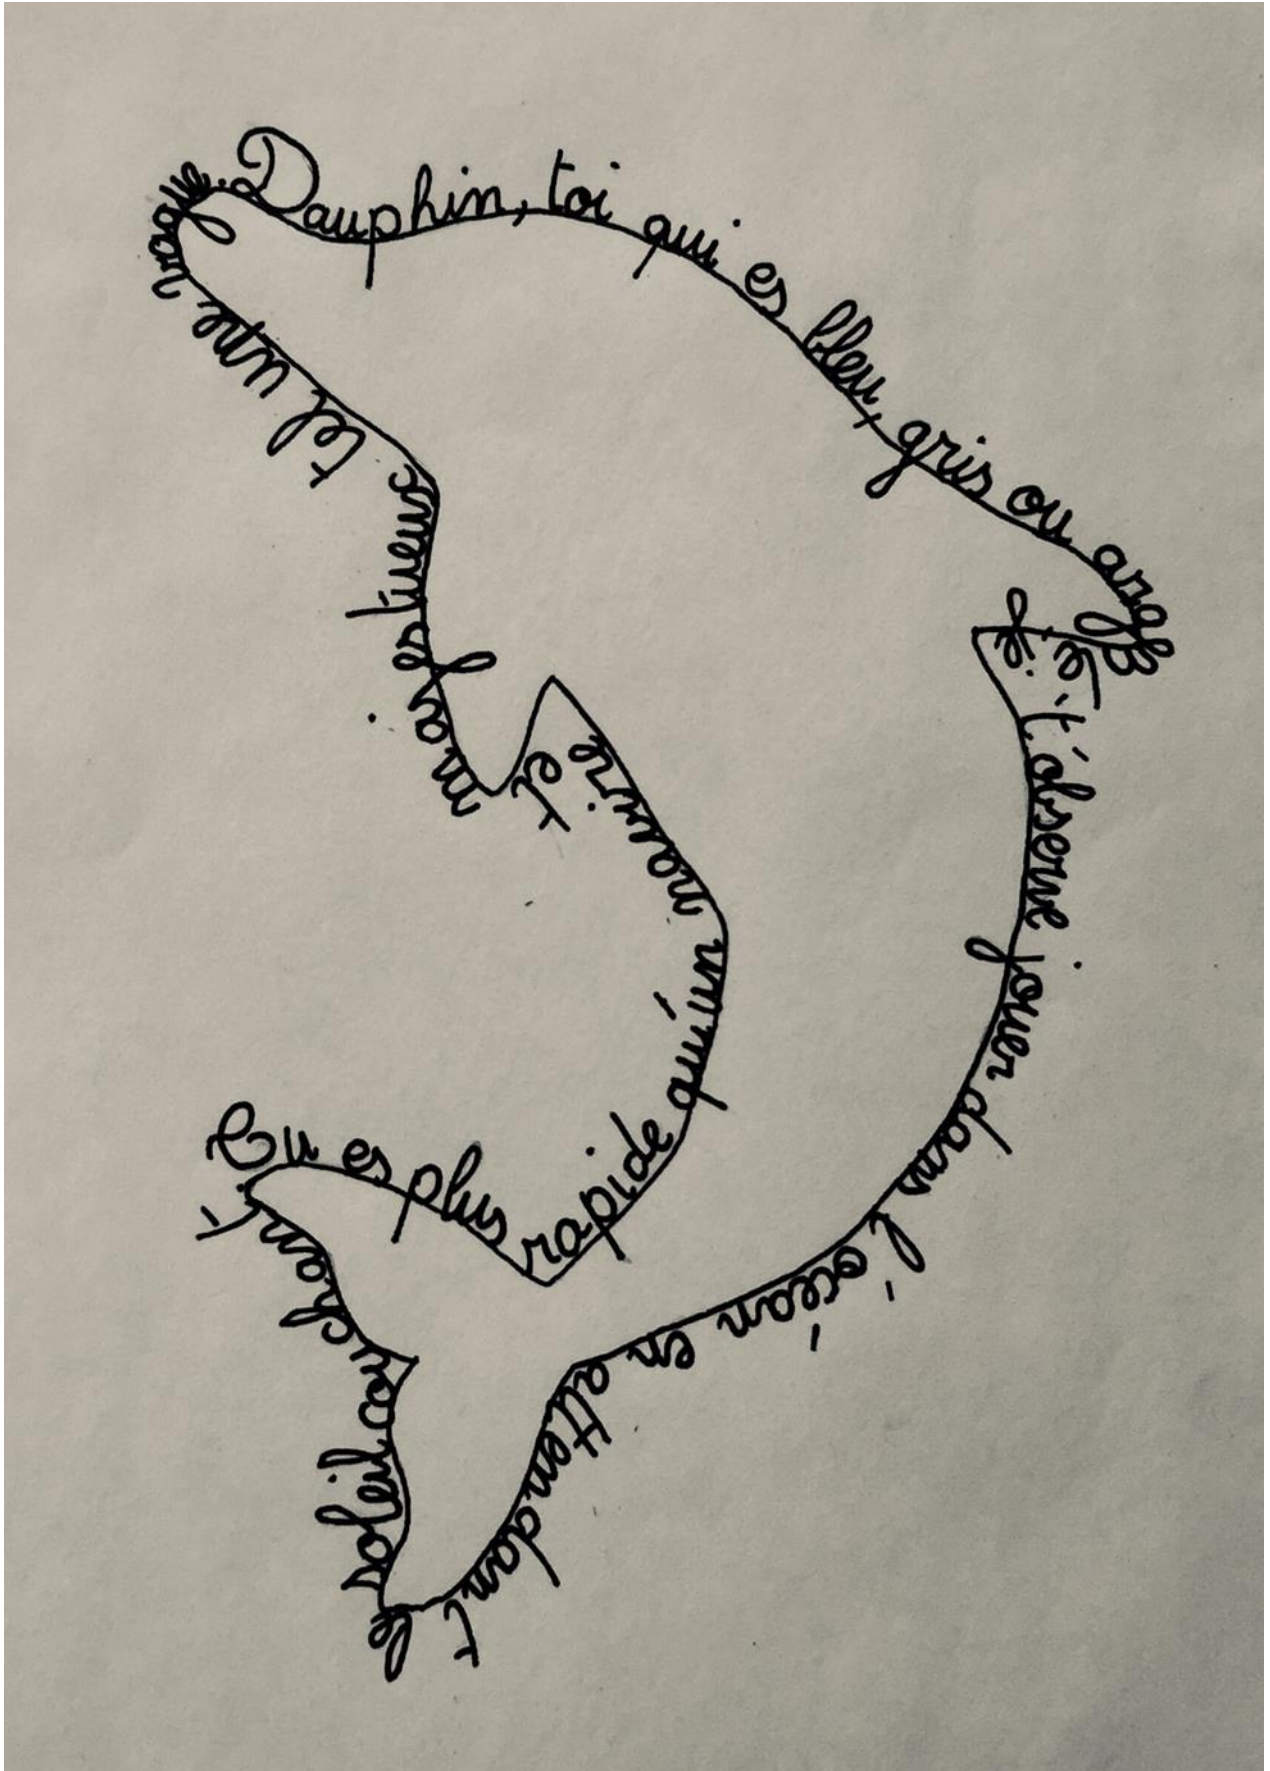 Dauphin, toi qui es bleu, gris ou argenté.
Je t'observe jouer dans l'océan en attendant le soleil couchant.
Tu es plus rapide qu'un navire et majestueux tel une vague.